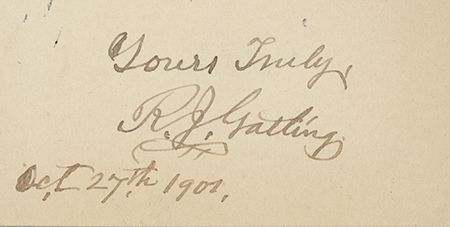 Yours Truly,
R. J. Gatling
Oct 27th 1901,